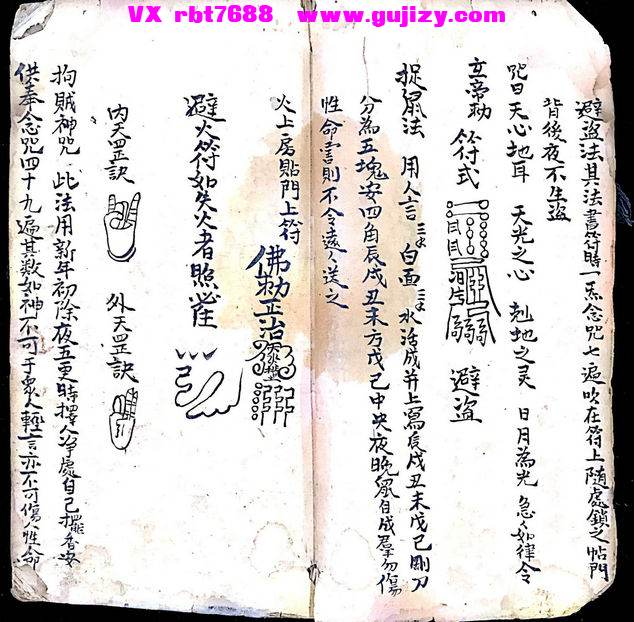 VX rbt7688 www.gujizy.com
避盗法其法書符時一炁念咒七遍吹在符上隨處鎖之帖門
背後夜不生盜
咒曰天心地耳 天光之心 剋地之灵 日月為光 急々如律令
玄帝勅 符式 避盗
捉鼠法 用人言 三錢 白面 三錢 水活成并上寫辰戌丑未戊己剛刀
分為五塊安四角辰戌丑未方戊己中央夜晚鼠自成羣勿傷
性命害則不令遠々送之
火上房貼門上符
佛勅正治
避火符如失火者照
內天罡訣
外天罡訣
拘賊神咒 此法用新年初除夜五更時擇人淨處自己擺香安
供奉念咒四十九遍其数如神不可于衆人輕言亦不可傷人性命